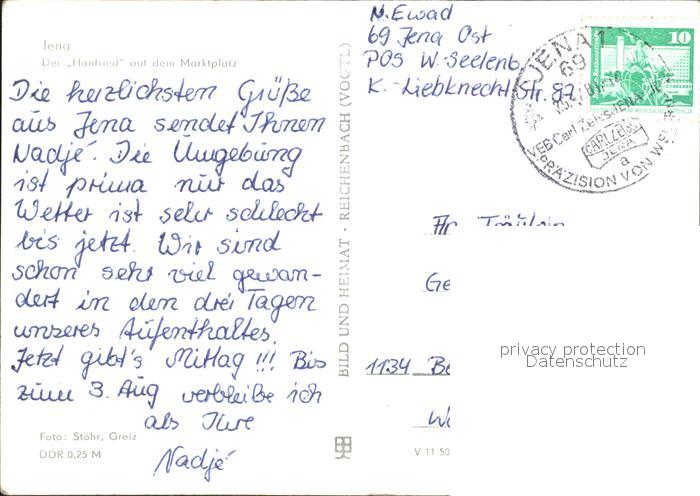 Jena
Der „Hanfried" auf dem Marktplatz
Die herzlichsten Grüße
aus Jena sendet Ihnen
Nadjé. Die Umgebung
ist prima nur das
Wetter ist sehr schlecht
bis jetzt. Wir sind
schon sehr viel gewan-
dert in den drei Tagen
unseres Aufenthaltes.
Jetzt gibt's Mittag !!! Bis
zum 3. Aug verbleibe ich
als Ihre
Nadjé
Foto: Stöhr, Greiz
DDR 0,25 M
BILD UND HEIMAT · REICHENBACH (VOGTL)
V 11 50
N. Ewad
69 Jena Ost
POS W. Seelenb
K.-Liebknecht Str. 87
JENA 1
69
VEB Carl Zeiss JENA
CARL ZEISS
JENA
a
PRÄZISION VON WELTRUF
10
An Fräulein
Ge
1134 Be
privacy protection
Datenschutz